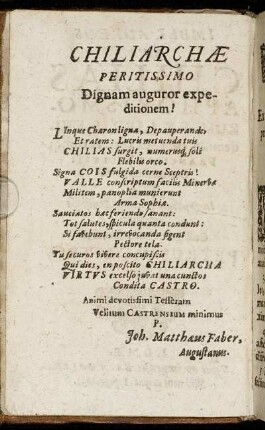 CHILIARCHÆ
PERITISSIMO
Dignam auguror expe-
ditionem!
LInque Charon ligua, Depauperande,
Et ratem: Lucris metuenda tuis
CHILIAS surgit, numerusq; soli
Flebilis orco.
Signa COIS fulgida cerne Sceptris!
VALLE conscriptum faciis Minerbæ
Militem, panoplia munierunt
Arma Sophiæ.
Sauciatos hac feriendo sanant:
Tot salutes, spicula quanta condunt:
Si favebunt, irrevocanda figent
Pectore tela.
Tu securos vibere concupiscis
Qui dies, en poscito CHILIARCHA
VIRTUS excelso jubat una cunctos
Condita CASTRO.
Animi devotissimi Tesseram
Velitum CASTRENSIUM minimus
P.
Joh. Matthæus Faber,
Augustanus.